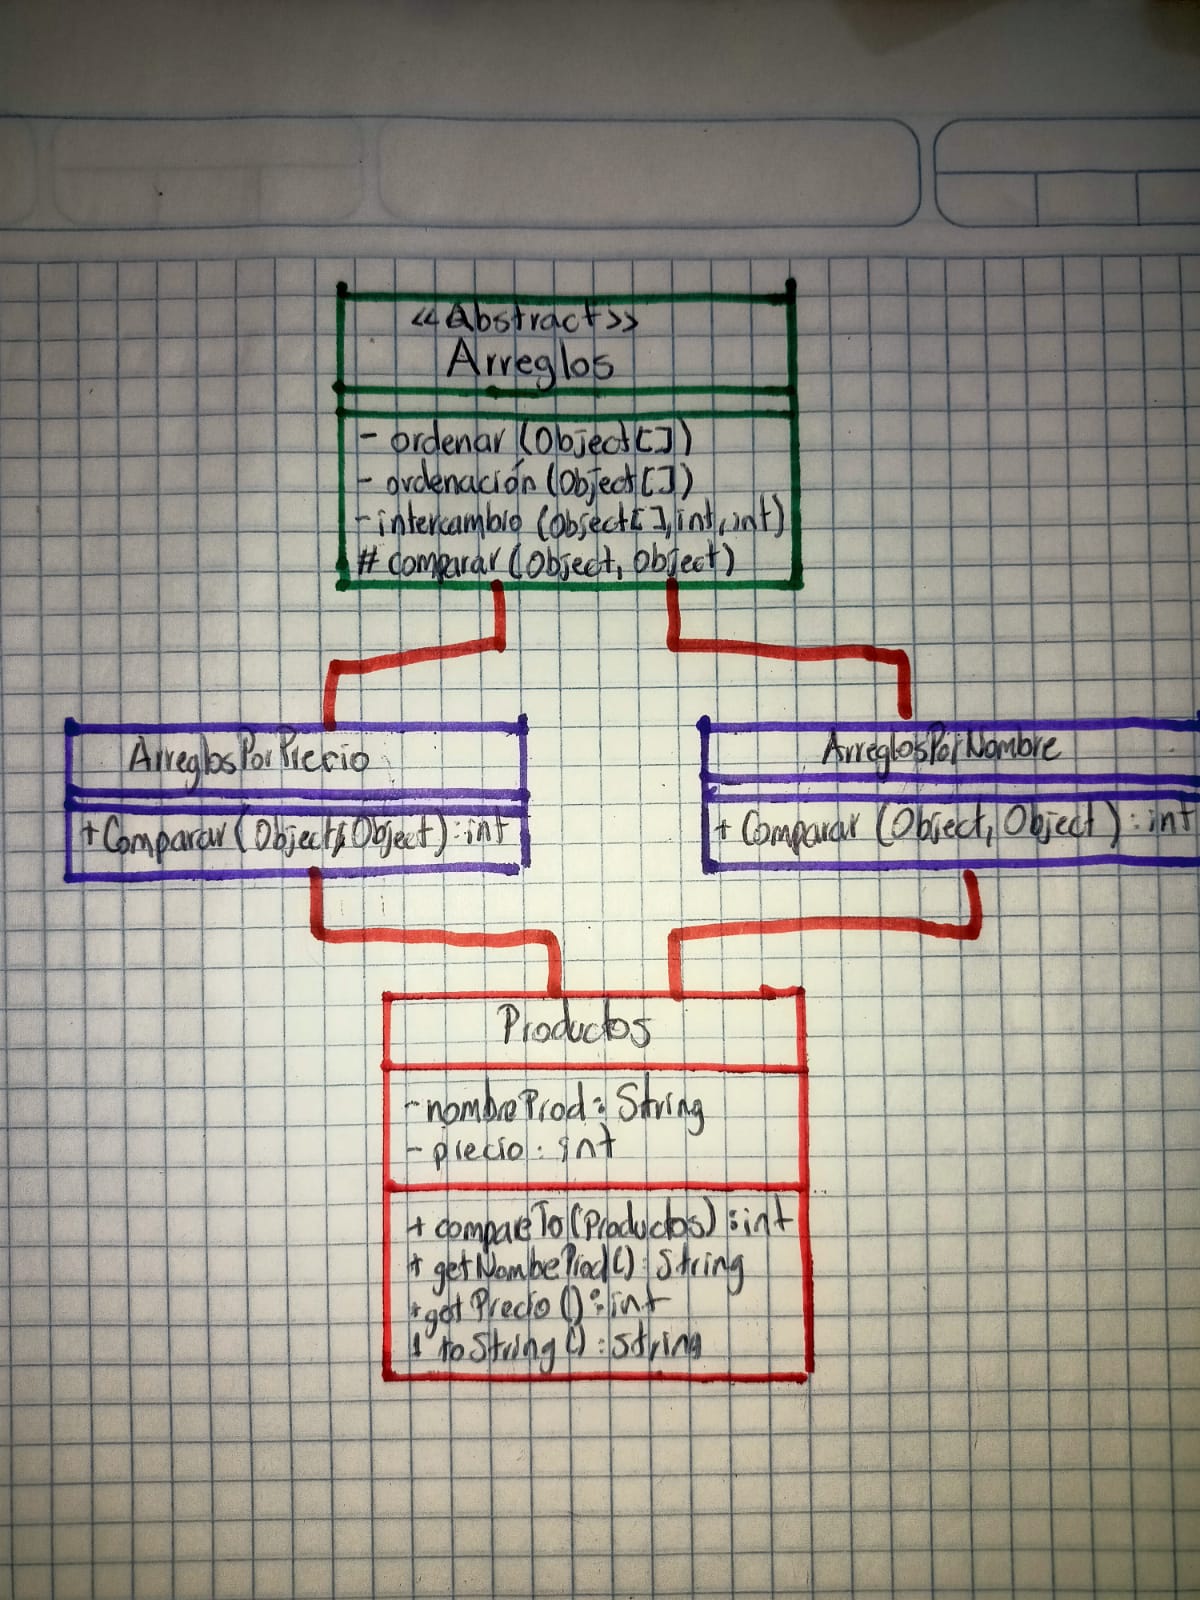 <<Abstract>>
Arreglos
- ordenar (Object[])
- ordenación (Object[])
- intercambio (Object[], int, int)
# comparar (Object, Object)
ArreglosPorPrecio
+ Comparar (Object, Object) : int
ArreglosPorNombre
+ Comparar (Object, Object) : int
Productos
- nombreProd : String
- precio : int
+ compareTo (Productos) : int
+ getNombeProd() : String
+ getPrecio () : int
+ toString () : String